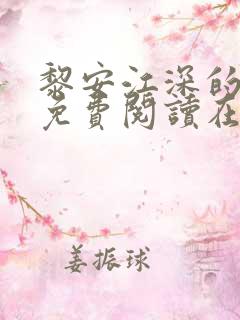 黎安江深的
免費閱讀在
姜振球